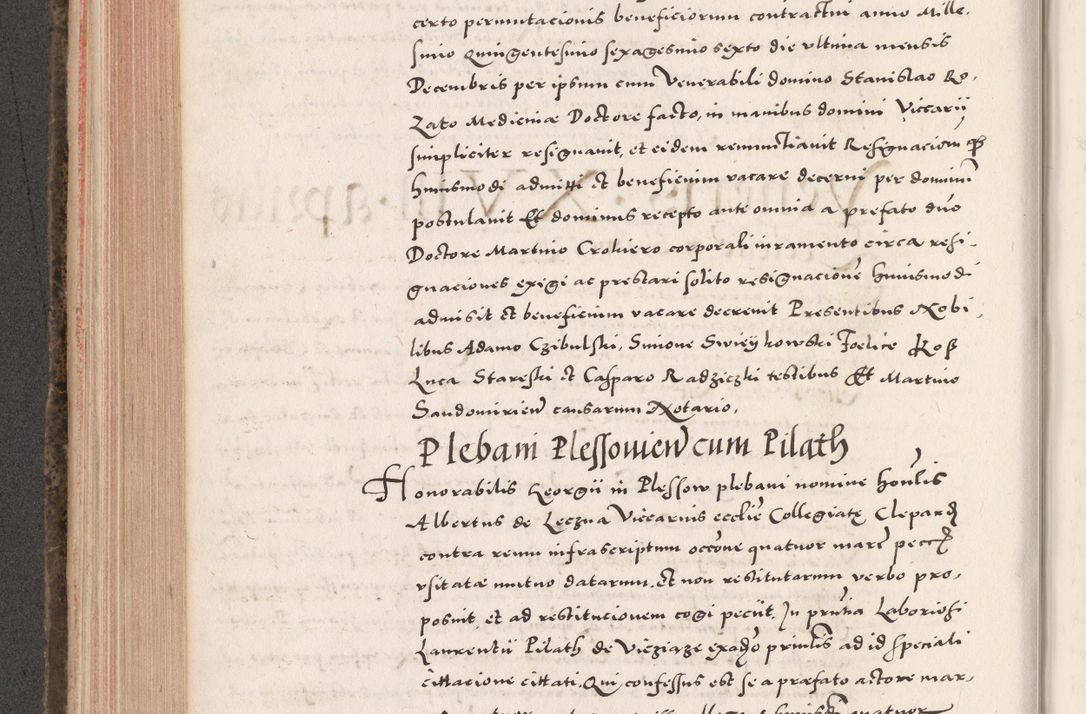 certo permutacionis beneficiorum contractui anno Mille,
simo Quingentesimo sexagesimo sexto die ultima mensis
Decembris per ipsum cum Venerabili domino Stanislao Ro,
zato Medicinæ Doctore facto, in manibus domini Viccarij
simpliciter resignavit, et eidem renuntiavit Resignacionem
huiusmodi admitti et beneficium vacare decerni per dominum
postulavit Et dominus recepto ante omnia a prefato dno
Doctore Martino Crokiero corporali iuramento circa resi,
gnaciones exigi ac prestari solito resignacione huiusmodi
admisit et beneficium vacare decrevit Presentibus Nobi,
libus Adamo Czibulski, Simone Swieykowski Foelice Ros
Luca Stareski et Casparo Radziczki testibus Et Martino
Sandomirien causarum Notario,
Plebani Plessovien cum Pilath
Honorabilis Georgii in Plessow plebani nomine honlis
Albertus de Leczna Viccarius ecclie Collegiatę Clepard
contra reum infrascriptum occone quatuor marc pecc
usitatæ mutuo datarum, et non restitutarum verbo pro,
posuit, et ad restitucionem cogi peciit, In prntia Laboriosi
Laurentii Pilath de Vieziaze ex adso printis ad id speciali
cittacione cittati, Qui confessus est se a præfato actore mar,